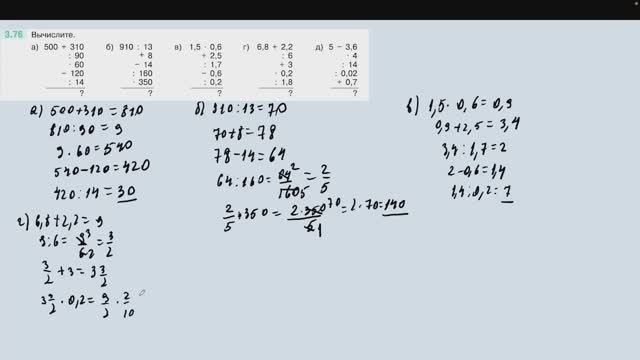 3.76 Вычислите.
а) 500 + 310 б) 910 : 13 в) 1,5 · 0,6 г) 6,8 + 2,2 д) 5 − 3,6
: 90 + 8 + 2,5 : 6 · 4
· 60 − 14 : 1,7 + 3 : 14
− 120 : 160 − 0,6 · 0,2 : 0,02
: 14 · 350 : 0,2 : 1,8 + 0,7
? ? ? ? ?
а) 500+310=810
810:90=9
9·60=540
540-120=420
420:14=30
б) 910:13=70
70+8=78
78-14=64
64:160=64²/1605=2/5
2/5+350=2·350⁷⁰/51=2·70=140
в) 1,5·0,6=0,9
0,9+2,5=3,4
3,4:1,7=2
2-0,6=1,4
1,4:0,2=7
г) 6,8+2,2=9
9:6=9³/6 2=3/2
3/2+3=3 3/2
3 3/2·0,2=9/2·2/10